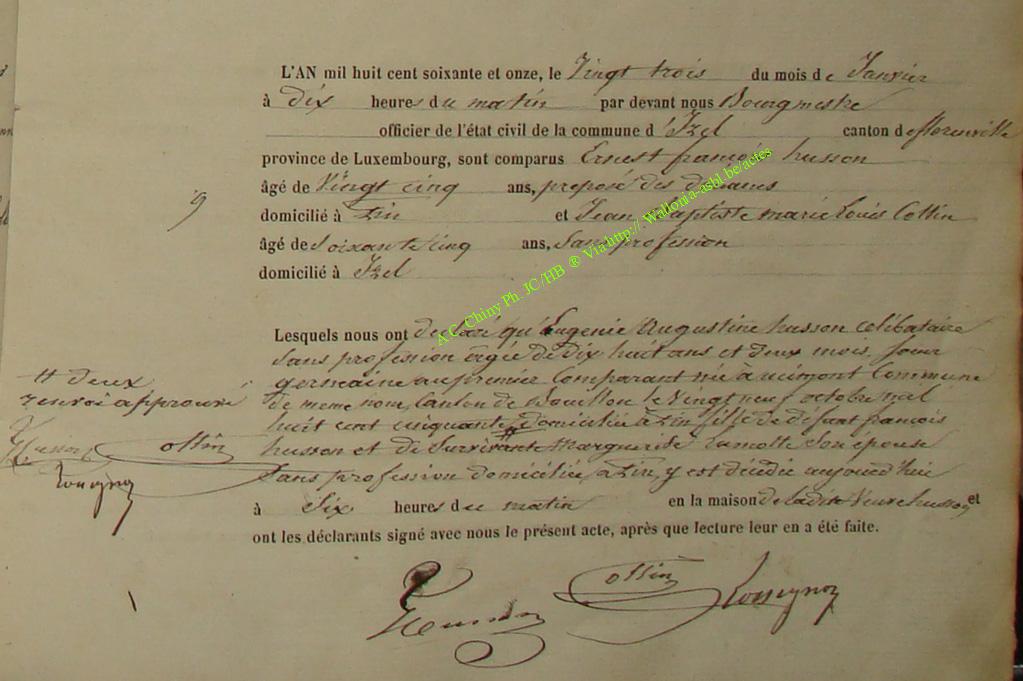 L'AN mil huit cent soixante et onze, le Vingt trois du mois de Janvier
à dix heures du matin par devant nous Bourgmestre
officier de l'état civil de la commune d'Izel canton de florenville
province de Luxembourg, sont comparus Ernest françois husson
âgé de Vingt cinq ans, preposé des douanes
domicilié à et Jean Baptiste marie Louis Collin
âgé de Soixante cinq ans, Sans profession
domicilié à Izel
9
A.C. Chiny Ph. JC/HB ® Via http://. Wallonia-asbl.be/actes
Lesquels nous ont déclaré qu'Eugenie Augustine husson célibataire
Sans profession agée de dix huit ans et deux mois, Sœur
germaine au premier Comparant née à ucimont Commune
de meme nom, Canton de Bouillon le Vingt neuf octobre mil
huit cent cinquante, domiciliée à fille de défunt françois
husson et de Survivante Marguerite Lamotte Son épouse
Sans profession domiciliée à y est décédée aujourd'hui
à Six heures du matin en la maison de ladite Veuve husson et
ont les déclarants signé avec nous le présent acte, après que lecture leur en a été faite.
deux
renvoi approuvé
Husson
Husson